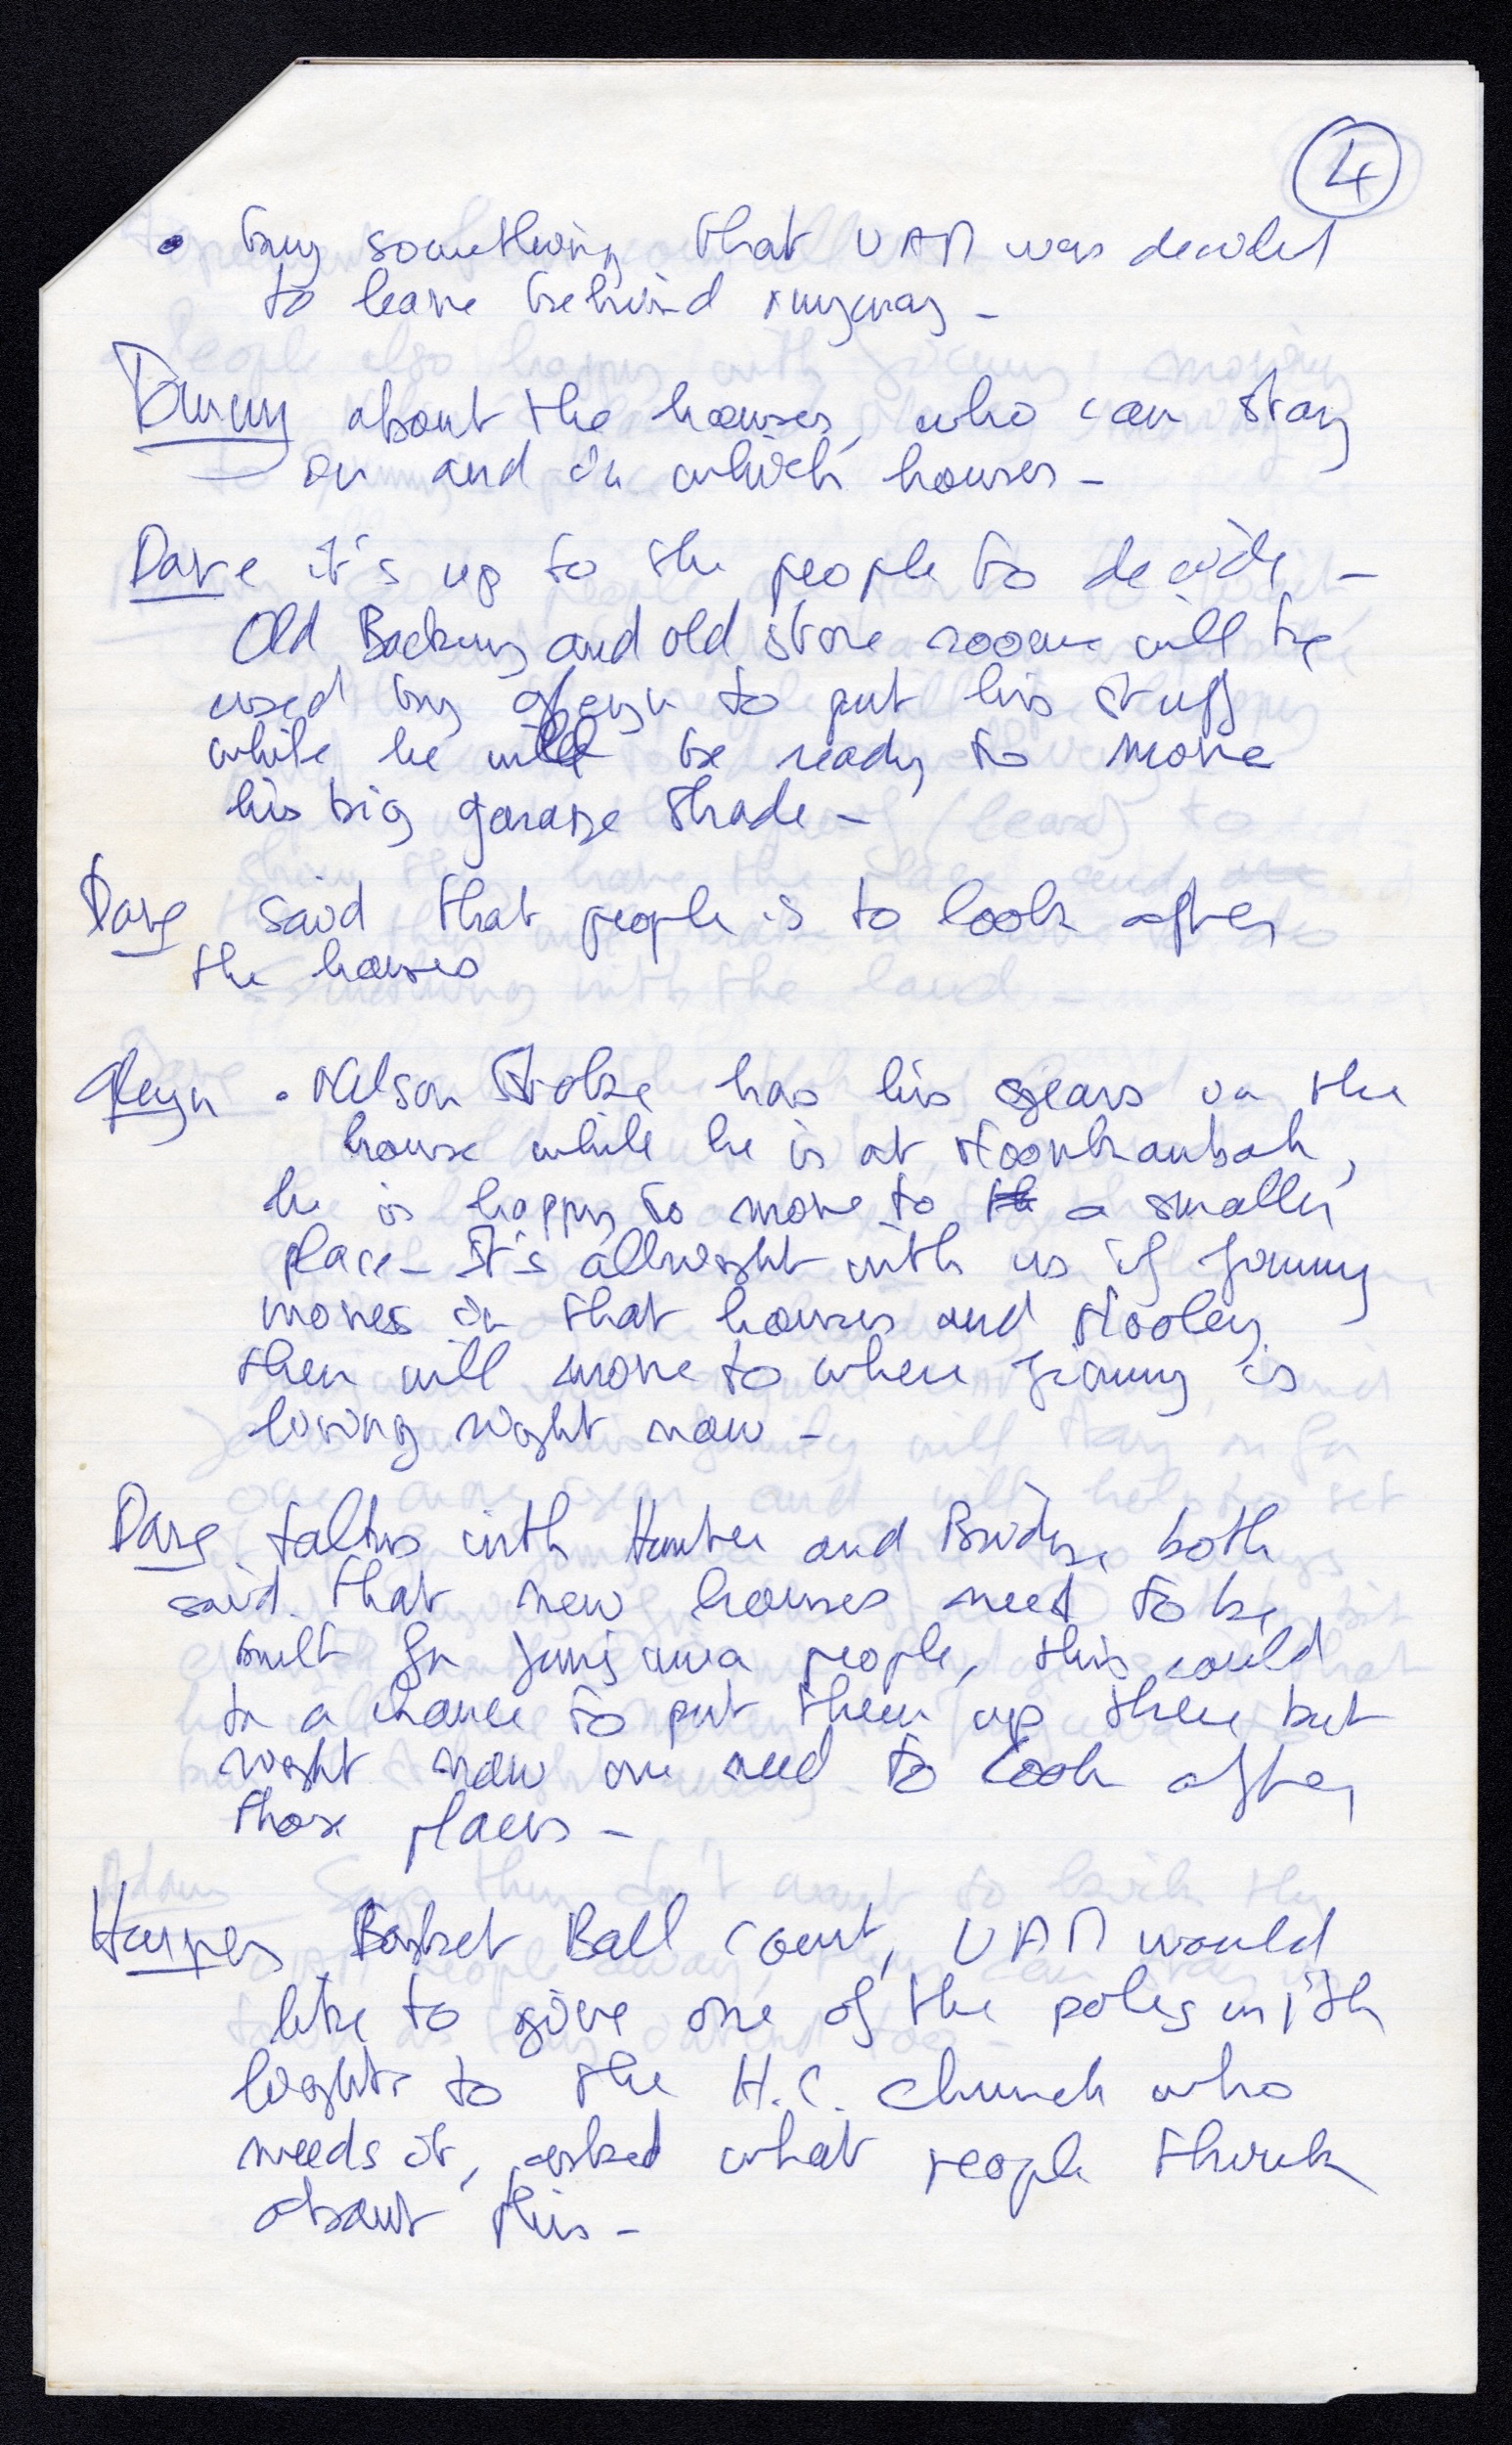 4
• buy something that UAM was decided
to leave behind anyway -
about the houses, who can stay
on and in which houses -
Dave it's up to the people to decide -
Old and old store room will be
used by Gleyn to put his stuff
while he will be ready to move
his big garage shade -
Dave said that people is to look after
the houses
Gleyn • Nelson has his gears in the
house while he is at Noonkanbah,
he is happy to move to a smaller
place - It's allwright with us if Jimmy
moves in that houses and Hooley
then will move to where Jimmy is
living right now -
Dave talks with Hunter and Bridge, both
said that new houses need to be
built for Junjuwa people, this could
be a chance to put them up there but
right now we need to look after
those places -
Harper Basket Ball court, UAM would
like to give one of the poles with
lights to the H.C. church who
needs it, asked what people think
about this -